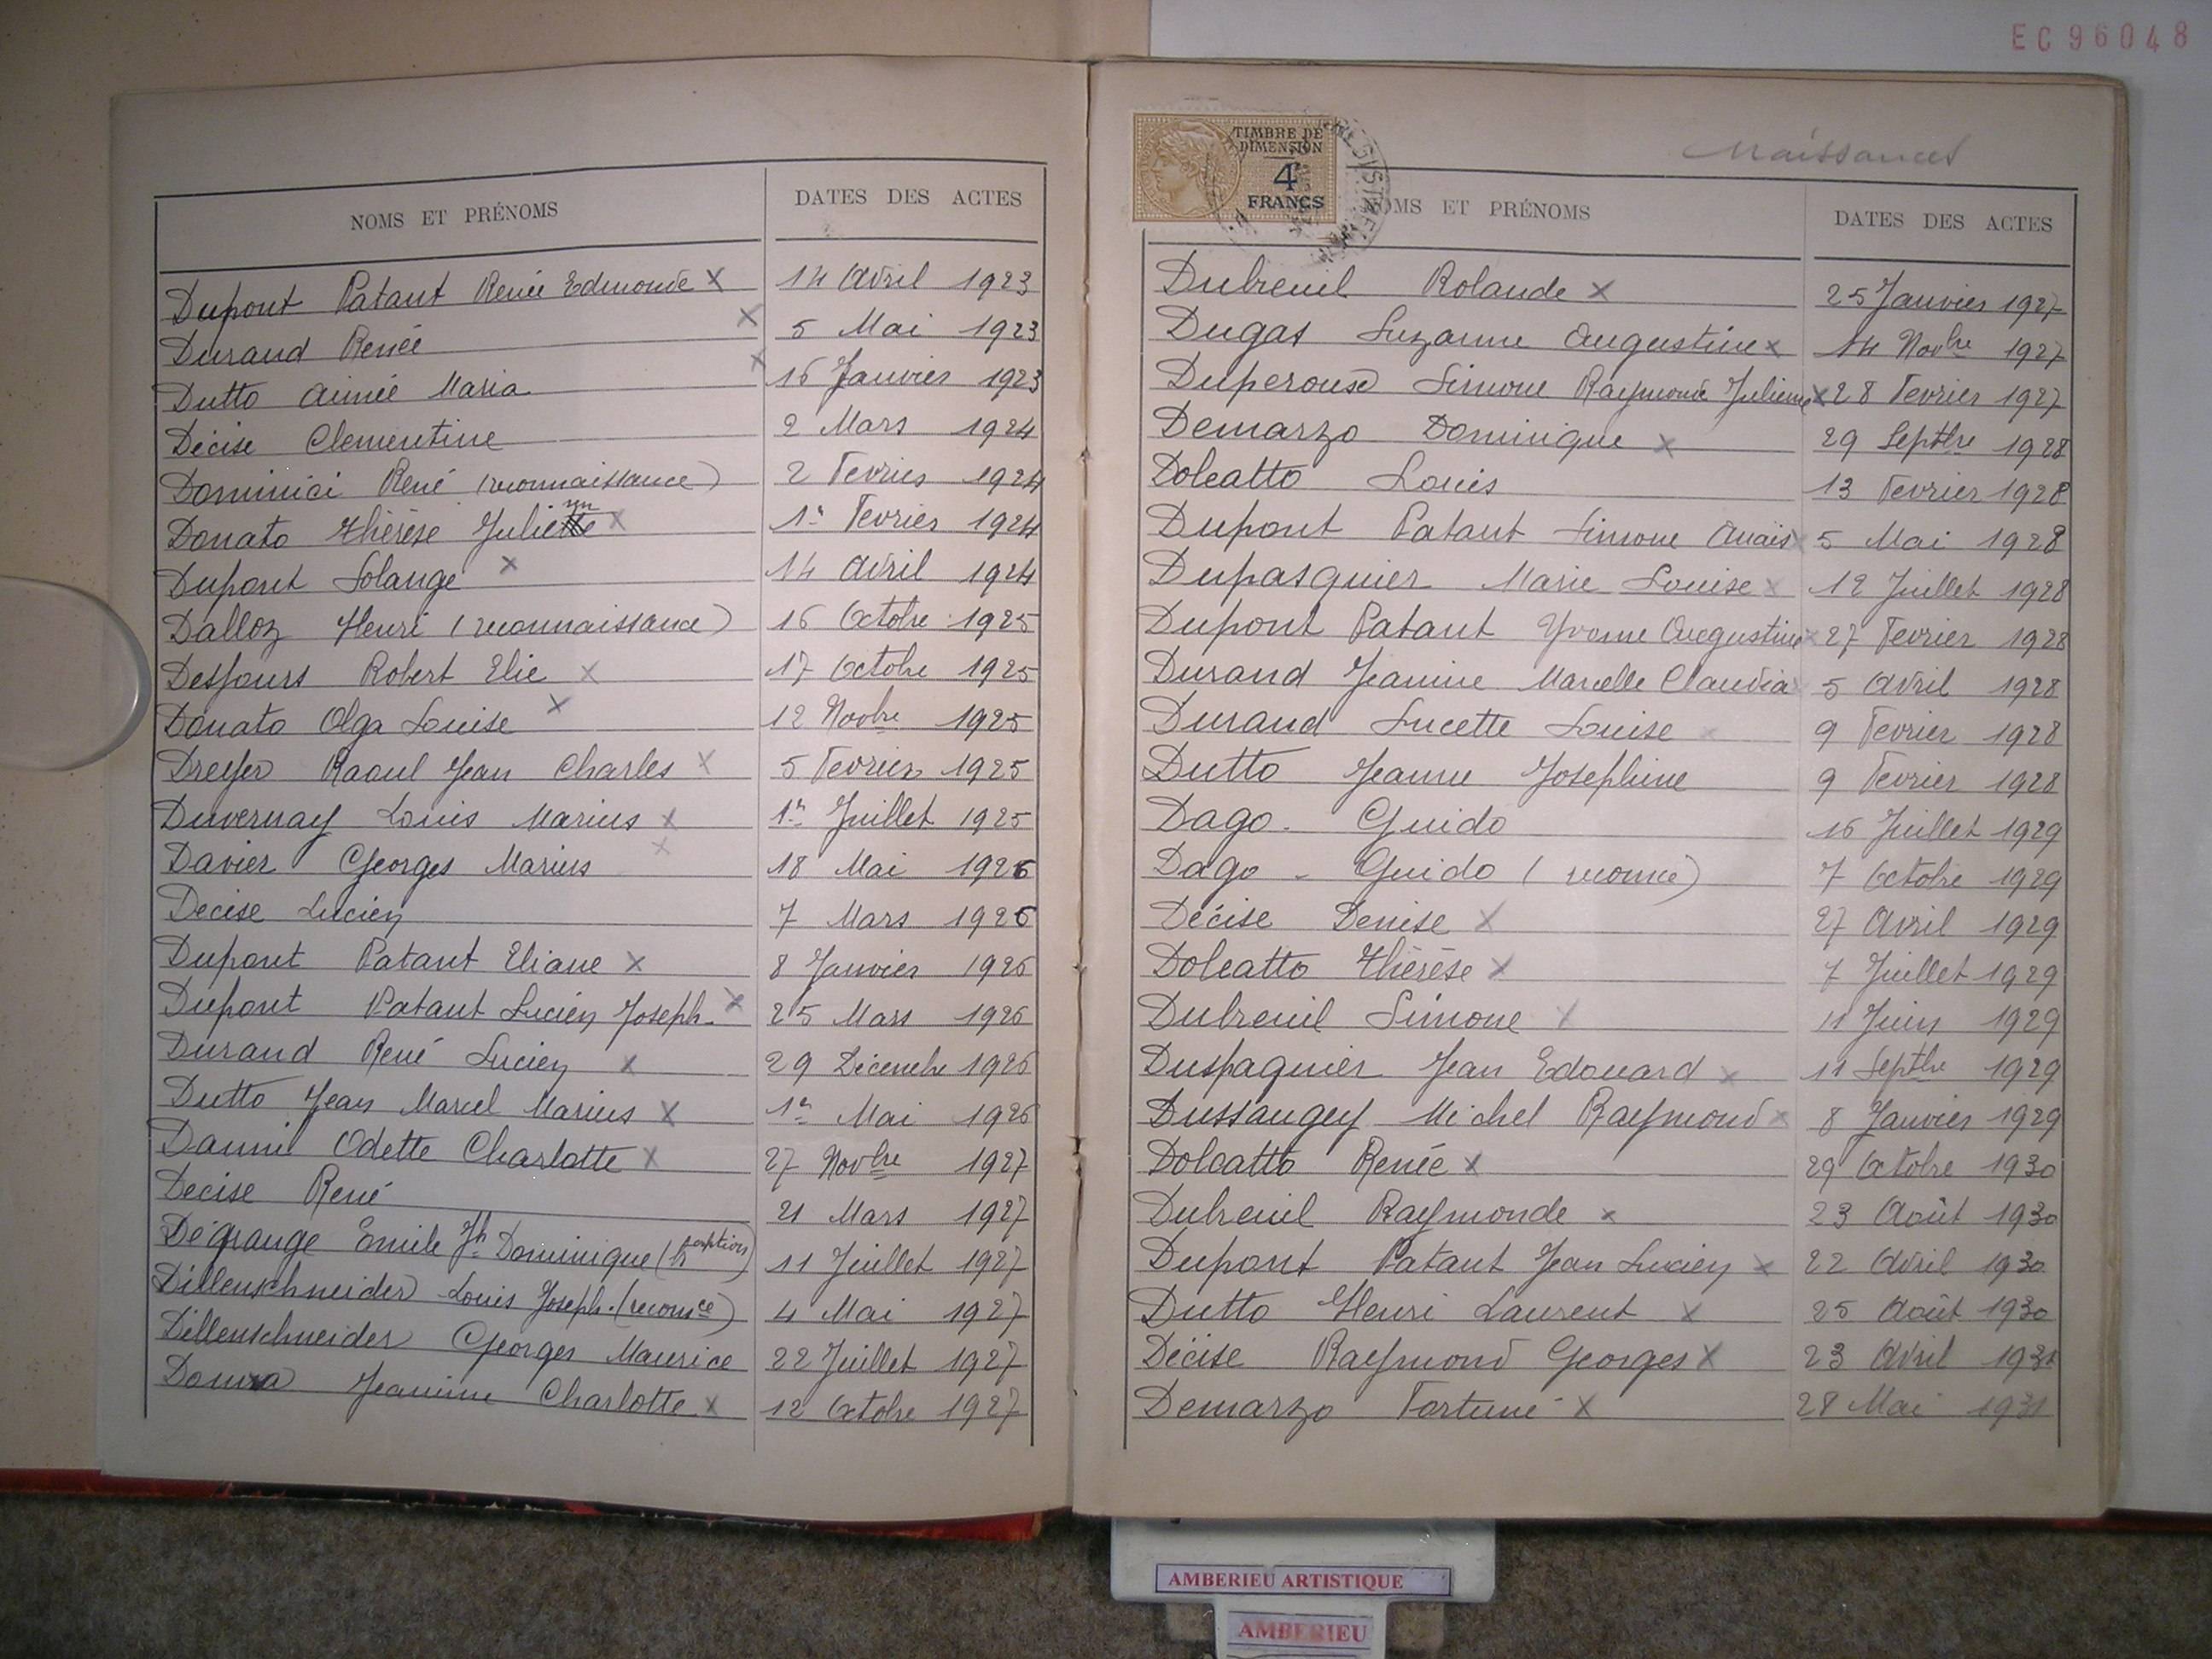 EC96048
NOMS ET PRÉNOMS DATES DES ACTES
Dupont Patant Renée Edmonde x 14 Avril 1923
Durand Renée x 5 Mai 1923
Dutto Aimée Maria x 16 Janvier 1923
Décise Clementine 2 Mars 1924
Dominici René (reconnaissance) 2 Fevrier 1924
Donato Thérèse Julienne x 1er Fevrier 1924
Dupont Solange x 14 Avril 1924
Dalloz Henri (reconnaissance) 16 Octobre 1925
Desfours Robert Elie x 17 Octobre 1925
Donato Olga Louise x 12 Novbre 1925
Dreyer Raoul Jean Charles x 5 Fevrier 1925
Duvernay Louis Marius x 1er Juillet 1925
Davier Georges Marius x 18 Mai 1926
Decise Lucien 7 Mars 1926
Dupont Patant Eliane x 8 Janvier 1926
Dupont Patant Lucien Joseph. x 25 Mars 1926
Durand René Lucien x 29 Décembre 1926
Dutto Jean Marcel Marius x 1er Mai 1926
Odette Charlotte x 27 Novbre 1927
Decise René 21 Mars 1927
Dégrange Emile Jh Dominique 11 Juillet 1927
Dillenschneider Louis Joseph. (reconnce) 4 Mai 1927
Dillenschneider Georges Maurice 22 Juillet 1927
Jeanine Charlotte x 12 Octobre 1927
TIMBRE DE
DIMENSION
4
FRANCS
Naissances
NOMS ET PRÉNOMS DATES DES ACTES
Dubreuil Rolande x 25 Janvier 1927
Dugas Suzanne Augustine x 14 Novbre 1927
Duperouse Simone Raymonde Julienne x 28 Fevrier 1927
Demarzo Dominique x 29 Septbre 1928
Doleatto Louis 13 Fevrier 1928
Dupont Patant Simone Anaïs x 5 Mai 1928
Dupasquier Marie Louise x 12 Juillet 1928
Dupont Patant Yvonne Augustine x 27 Fevrier 1928
Durand Jeanine Marcelle Claudia x 5 Avril 1928
Durand Lucette Louise x 9 Fevrier 1928
Dutto Jeanne Josephine 9 Fevrier 1928
Dago. Guido 16 Juillet 1929
Dago - Guido (reconnce) 7 Octobre 1929
Décise Denise x 27 Avril 1929
Doleatto Thérèse x 7 Juillet 1929
Dubreuil Simone x 11 Juin 1929
Duspaquier Jean Edouard x 11 Septbre 1929
Dussaugey Michel Raymond x 8 Janvier 1929
Doleatto Renée x 29 Octobre 1930
Dubreuil Raymonde x 23 Août 1930
Dupont Patant Jean Lucien x 22 Avril 1930
Dutto Henri Laurent x 25 Août 1930
Décise Raymond Georges x 23 Avril 1931
Demarzo Fortuné x 28 Mai 1931
AMBERIEU ARTISTIQUE
AMBERIEU